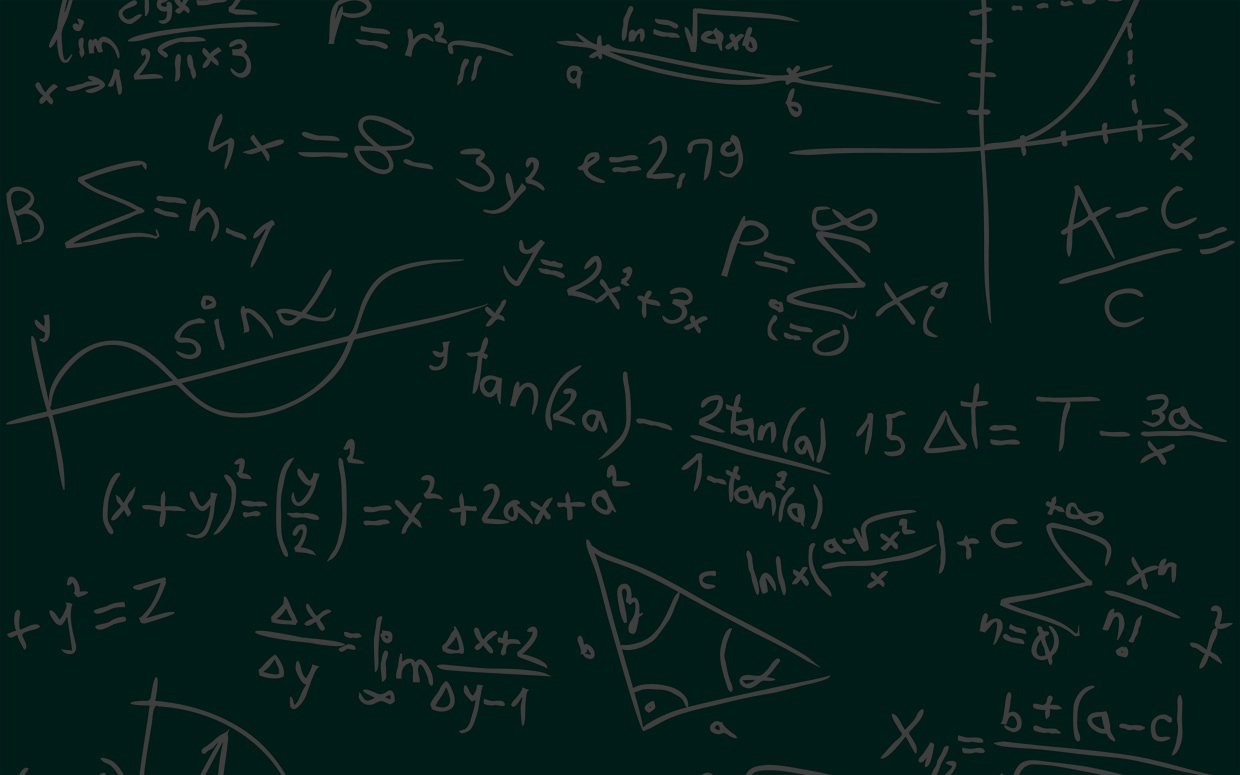 lim x→1 2√π×3
P = r²/π
ln = √a×b
a
b
x
4x = 8 - 3y²
e = 2,79
B Σ = n-1
y = 2x² + 3x
P = ∞ Σ i=0 xᵢⁱ
A - C / C =
y
sin α
x
y
tan(2a) - 2tan(a) / 1-tan²(a)
15 Δt = T - 3a/x
(x+y)² = (y/2)² = x² + 2ax + a²
ln|x(a-√x²/x) + C
+∞ Σ n=0 xⁿ/n!
+ y² = Z
Δx/Δy = lim ∞ Δx+2/Δy-1
β
c
b
α
a
x₁/₂ = b ± (a-c)